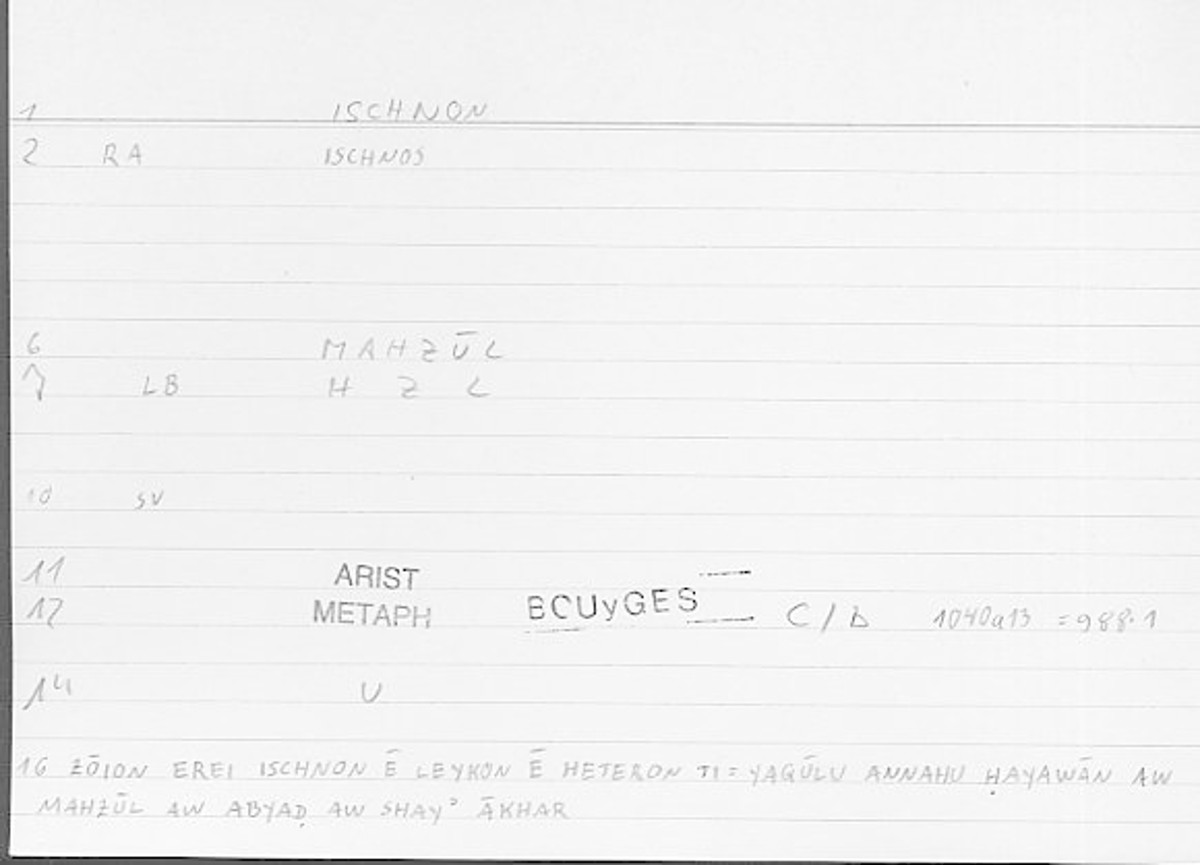 1 ISCHNON
2 RA ISCHNOS
6 MAHZŪL
7 LB H Z L
10 SV
11 ARIST
12 METAPH BCUyGES C/b 1040a13 =988.1
14 U
16 ZŌION EREI ISCHNON Ē LEYKON Ē HETERON TI = YAQŪLU ANNAHU ḤAYAWĀN AW
MAHZŪL AW ABYAḌ AW SHAYʾ ĀKHAR